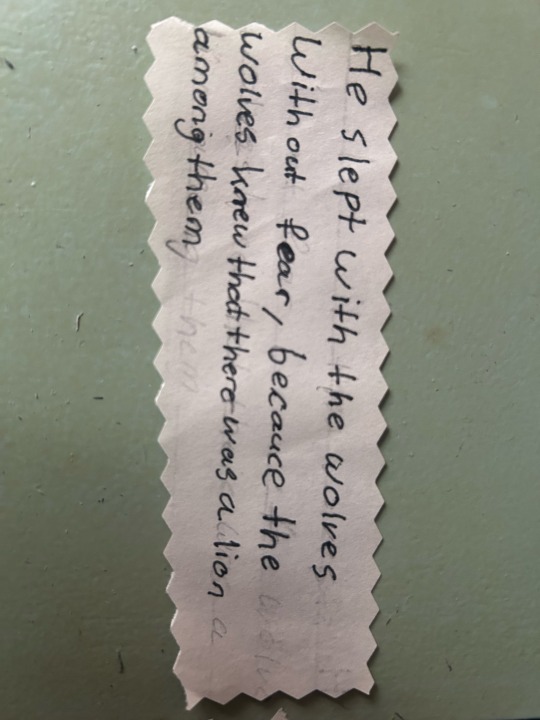 He slept with the wolves
Without fear, becauce the
wolves knew that there was a lion a
among them them